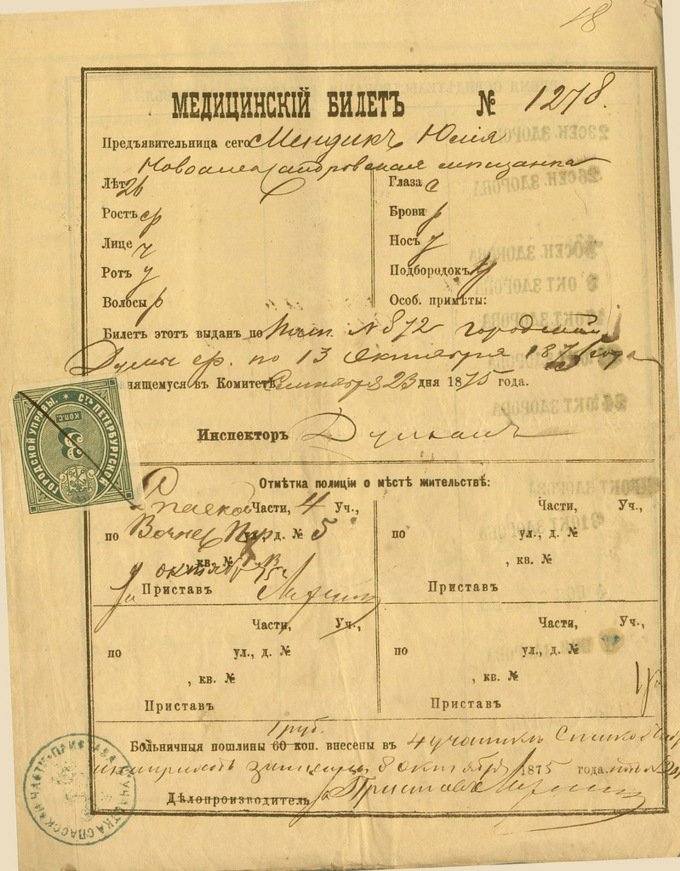 18
МЕДИЦИНСКІЙ БИЛЕТЪ № 1278.
Предъявительница сего Мендикъ Юлія
Новоалександровская мѣщанка
Лѣтъ 26 Глаза с
Ростъ ср Брови р
Лице ч Носъ у
Ротъ у Подбородокъ у
Волосы р Особ. примѣты:
Билетъ этотъ выданъ по № 872 городской
Думы ср. по 13 Октября 1875 года
нящемуся въ Комитетѣ Сентября 23 дня 1875 года.
С.ТЪ ПЕТЕРБУРГСКОЙ ГОРОДСКОЙ УПРАВЫ.
3 КОП. С.
Инспекторъ
Отмѣтка полиціи о мѣстѣ жительствѣ:
Спаской Части, 4 Уч., Части, Уч.,
по пер. ул., д. № 5 по ул., д. №
кв. № , кв. №
октября
за Приставъ Приставъ
Части, Уч., Части, Уч.,
по ул., д. № по ул., д. №
, кв. № , кв. №
Приставъ Приставъ
1 руб.
Больничныя пошлины 60 коп. внесены въ 4 участокъ Спаской
8 октября 1875 года
Дѣлопроизводитель за Приставъ